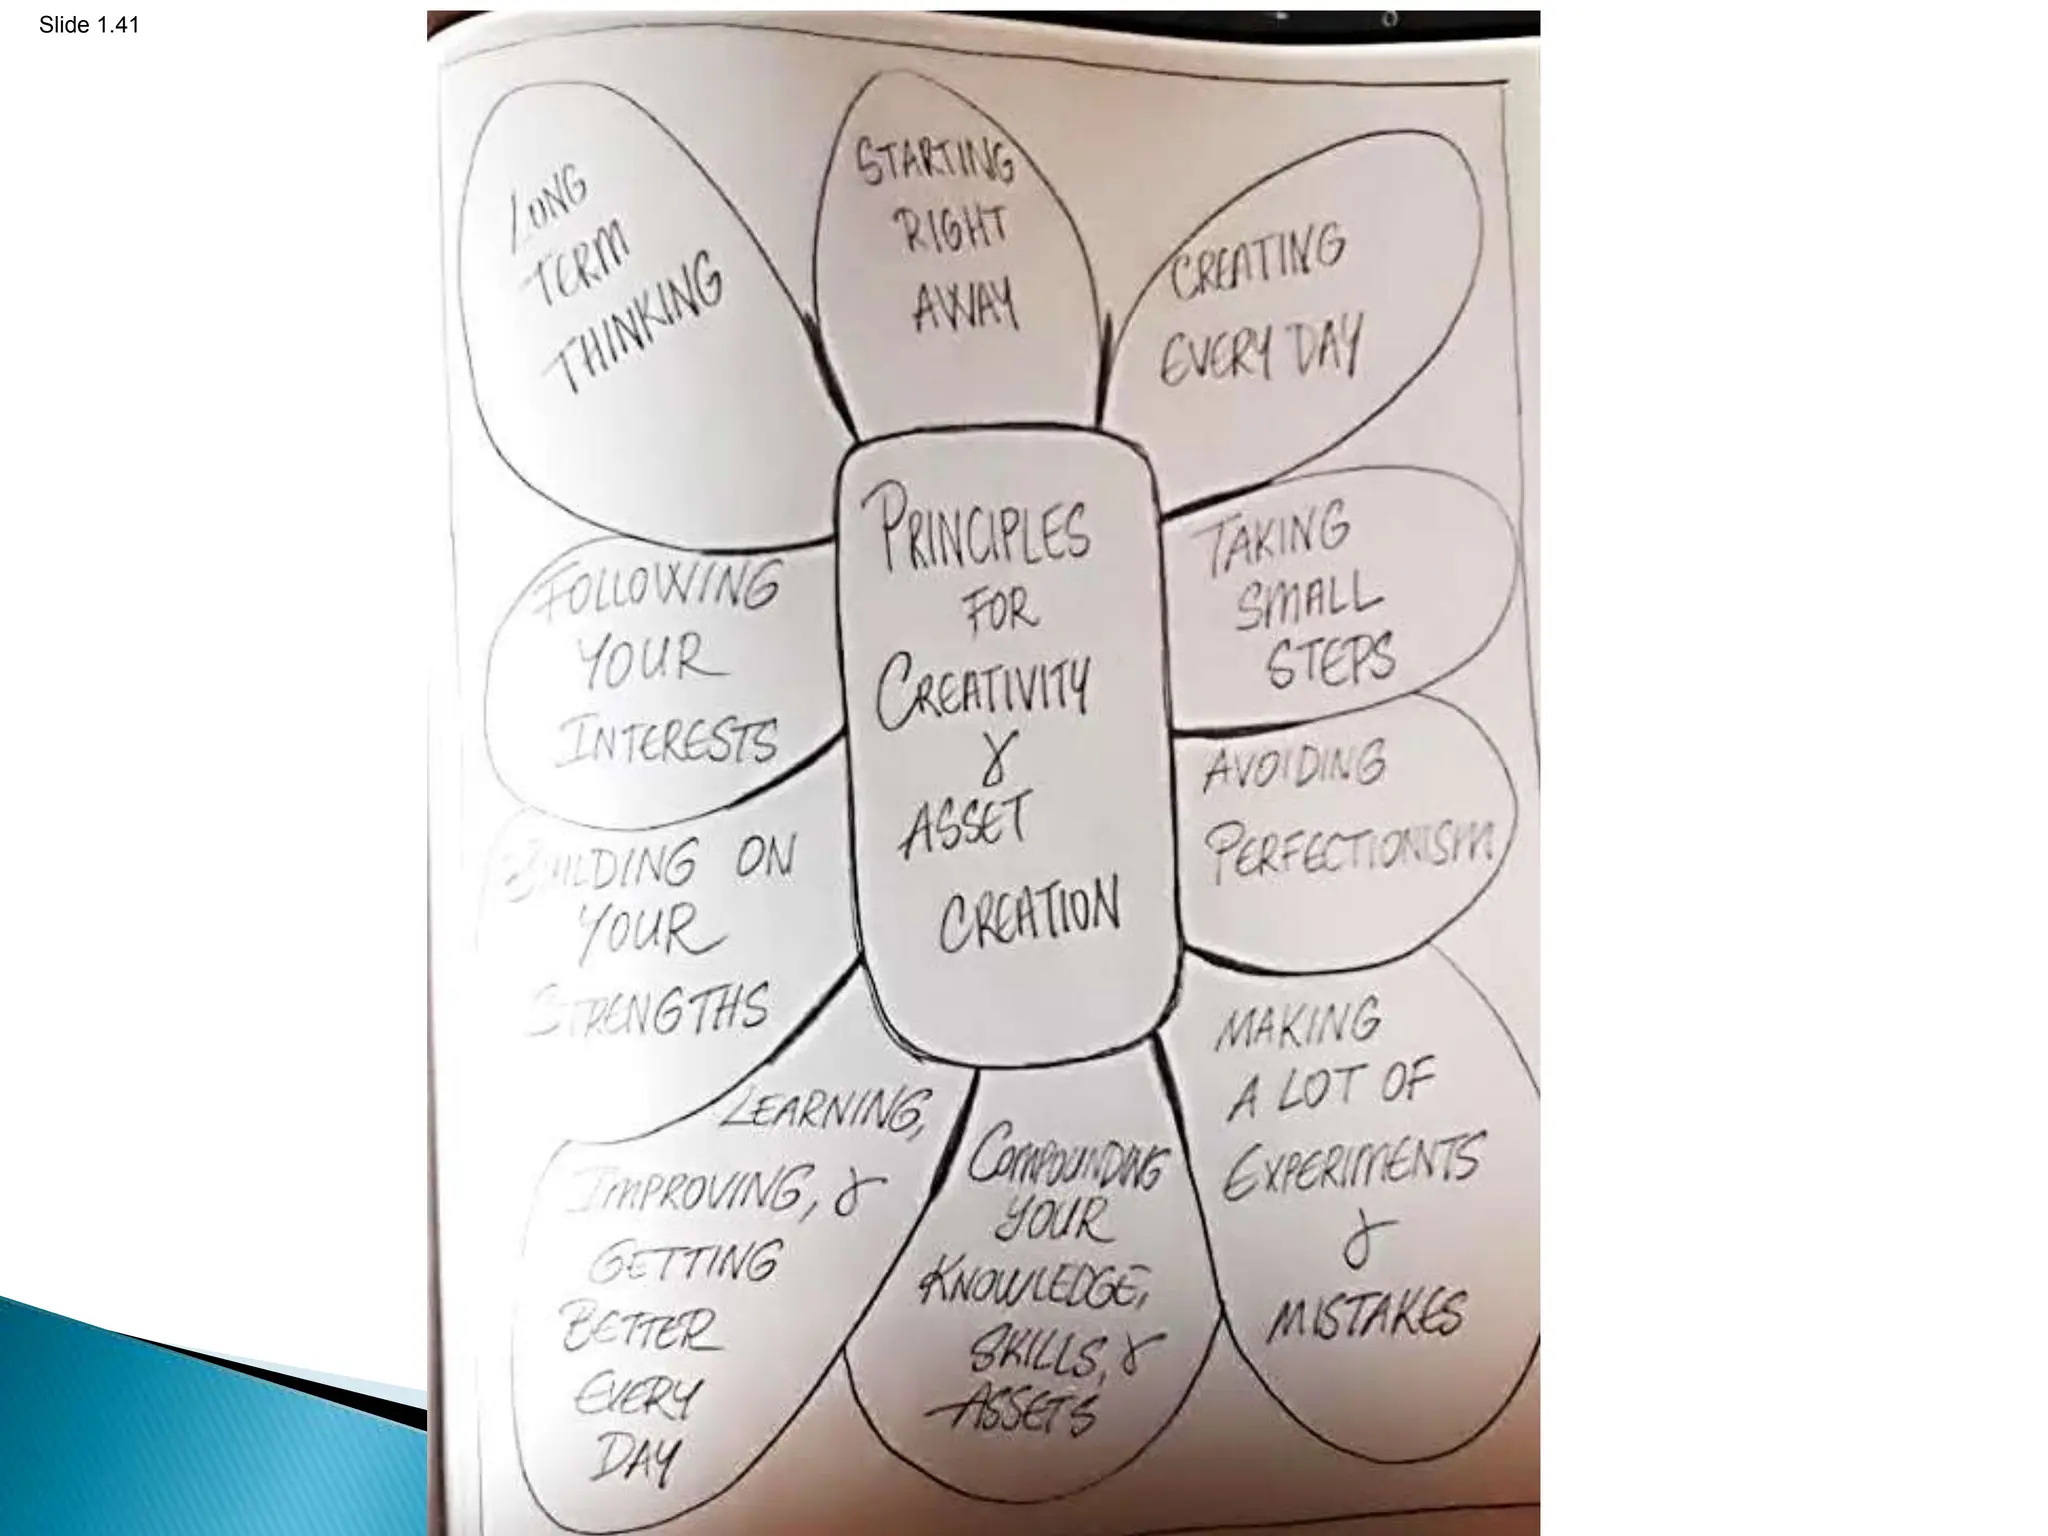 Slide 1.41
LONG
TERM
THINKING
STARTING
RIGHT
AWAY
CREATING
EVERY DAY
TAKING
SMALL
STEPS
AVOIDING
PERFECTIONISM
MAKING
A LOT OF
EXPERIMENTS
&
MISTAKES
COMPOUNDING
YOUR
KNOWLEDGE,
SKILLS, &
ASSETS
LEARNING,
IMPROVING, &
GETTING
BETTER
EVERY
DAY
BUILDING ON
YOUR
STRENGTHS
FOLLOWING
YOUR
INTERESTS
PRINCIPLES
FOR
CREATIVITY
&
ASSET
CREATION